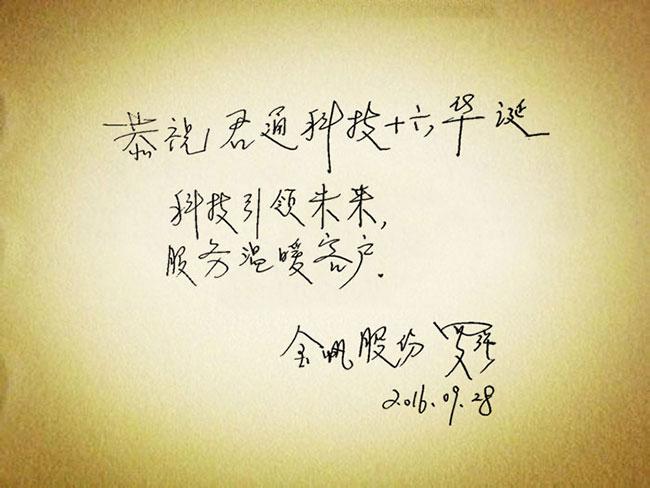 恭祝君通科技十六华诞
科技引领未来,
服务温暖客户.
金帆股份 罗
2016.09.28